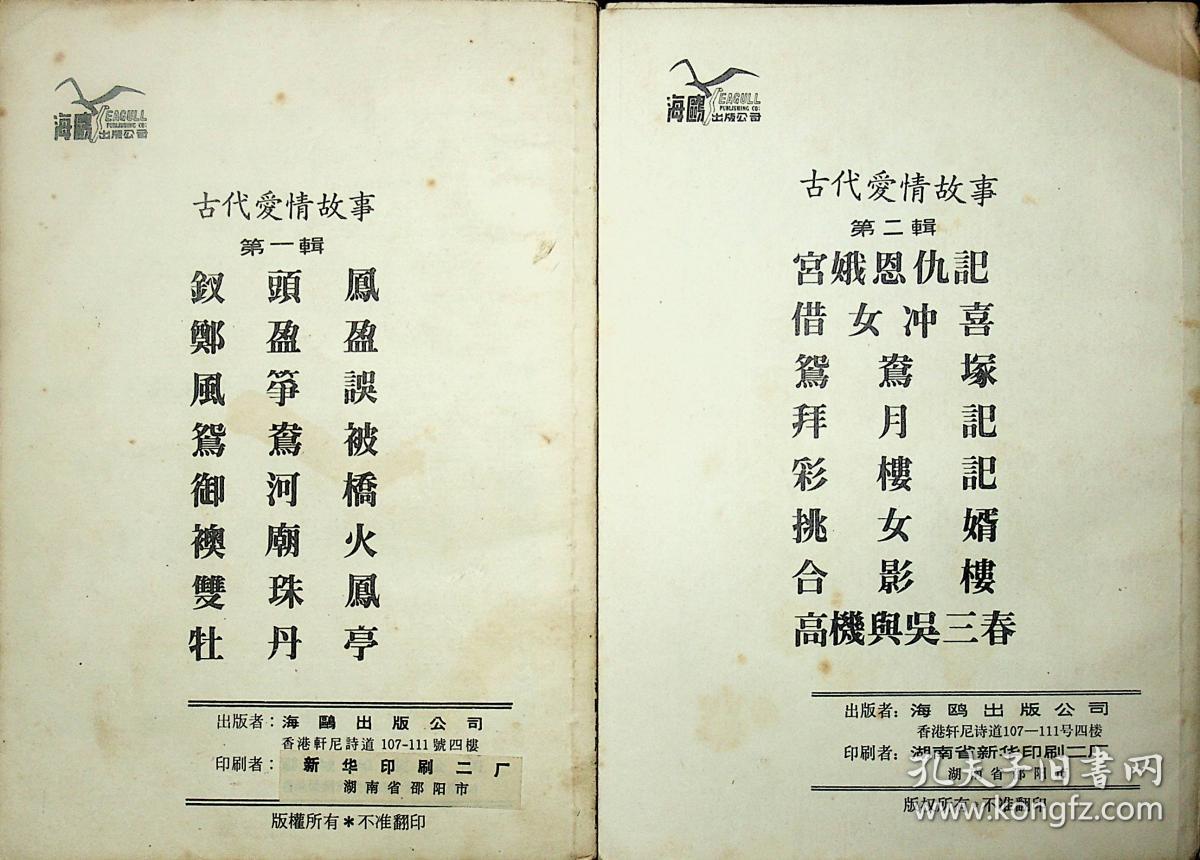 海鷗 SEAGULL
PUBLISHING CO:
出版公司
古代愛情故事
第一輯
釵頭鳳
鄭盈盈
風箏誤
鴛鴦被
御河橋
襖廟火
雙珠鳳
牡丹亭
出版者：海鷗出版公司
香港軒尼詩道 107-111 號四樓
印刷者：新华印刷二厂
湖南省邵阳市
版權所有＊不准翻印
海鷗 SEAGULL
PUBLISHING CO:
出版公司
古代愛情故事
第二輯
宮娥恩仇記
借女冲喜
鴛鴦塚
拜月記
彩樓記
挑女婿
合影樓
高機與吳三春
出版者：海鸥出版公司
香港轩尼诗道107—111号四楼
印刷者：湖南省新华印刷二厂
湖南省邵阳市
版权所有·不准翻印
孔夫子旧书网
www.kongfz.com